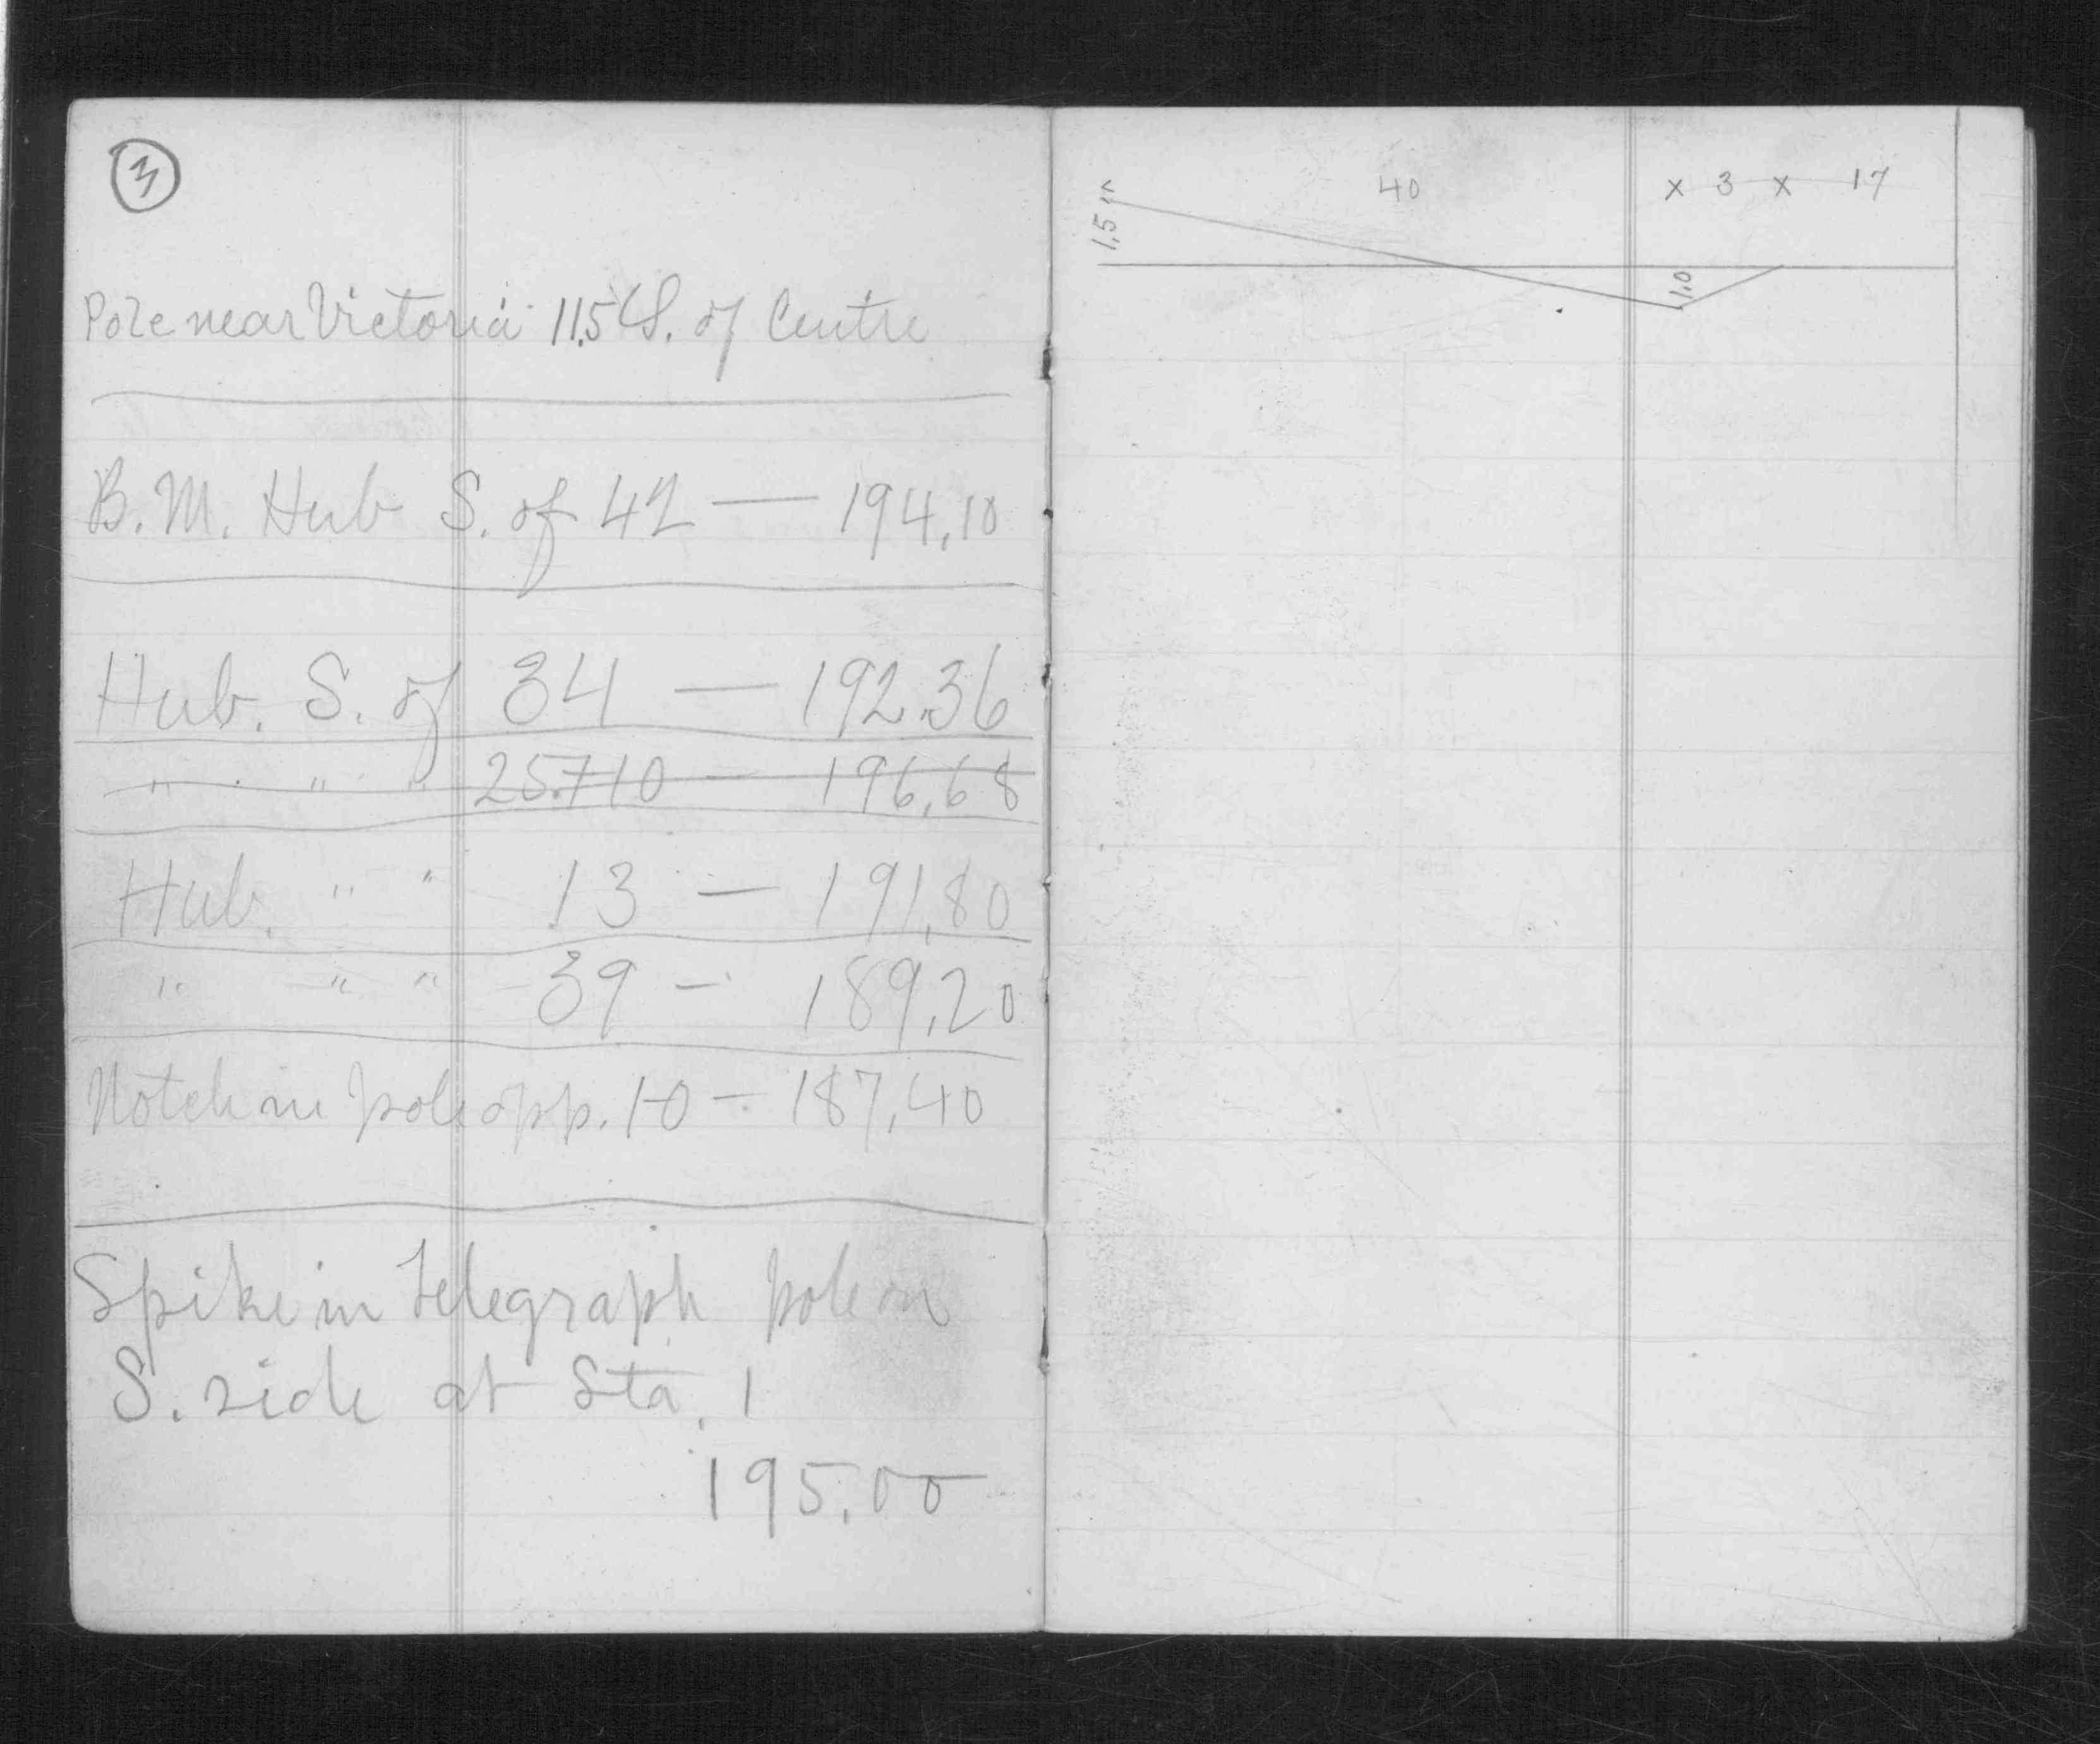 3
Pole near Victoria 11.5 S. of Centre
B.M. Hub S. of 42 — 194.10
Hub. S. of 34 — 192.36
" " " 25+10 — 196.68
Hub. " " 13 — 191.80
" " " 39 — 189.20
Notch in pole opp. 10 — 187.40
Spike in telegraph pole on
S. side at Sta. 1
195.00
40 x 3 x 17
1.5
1.0